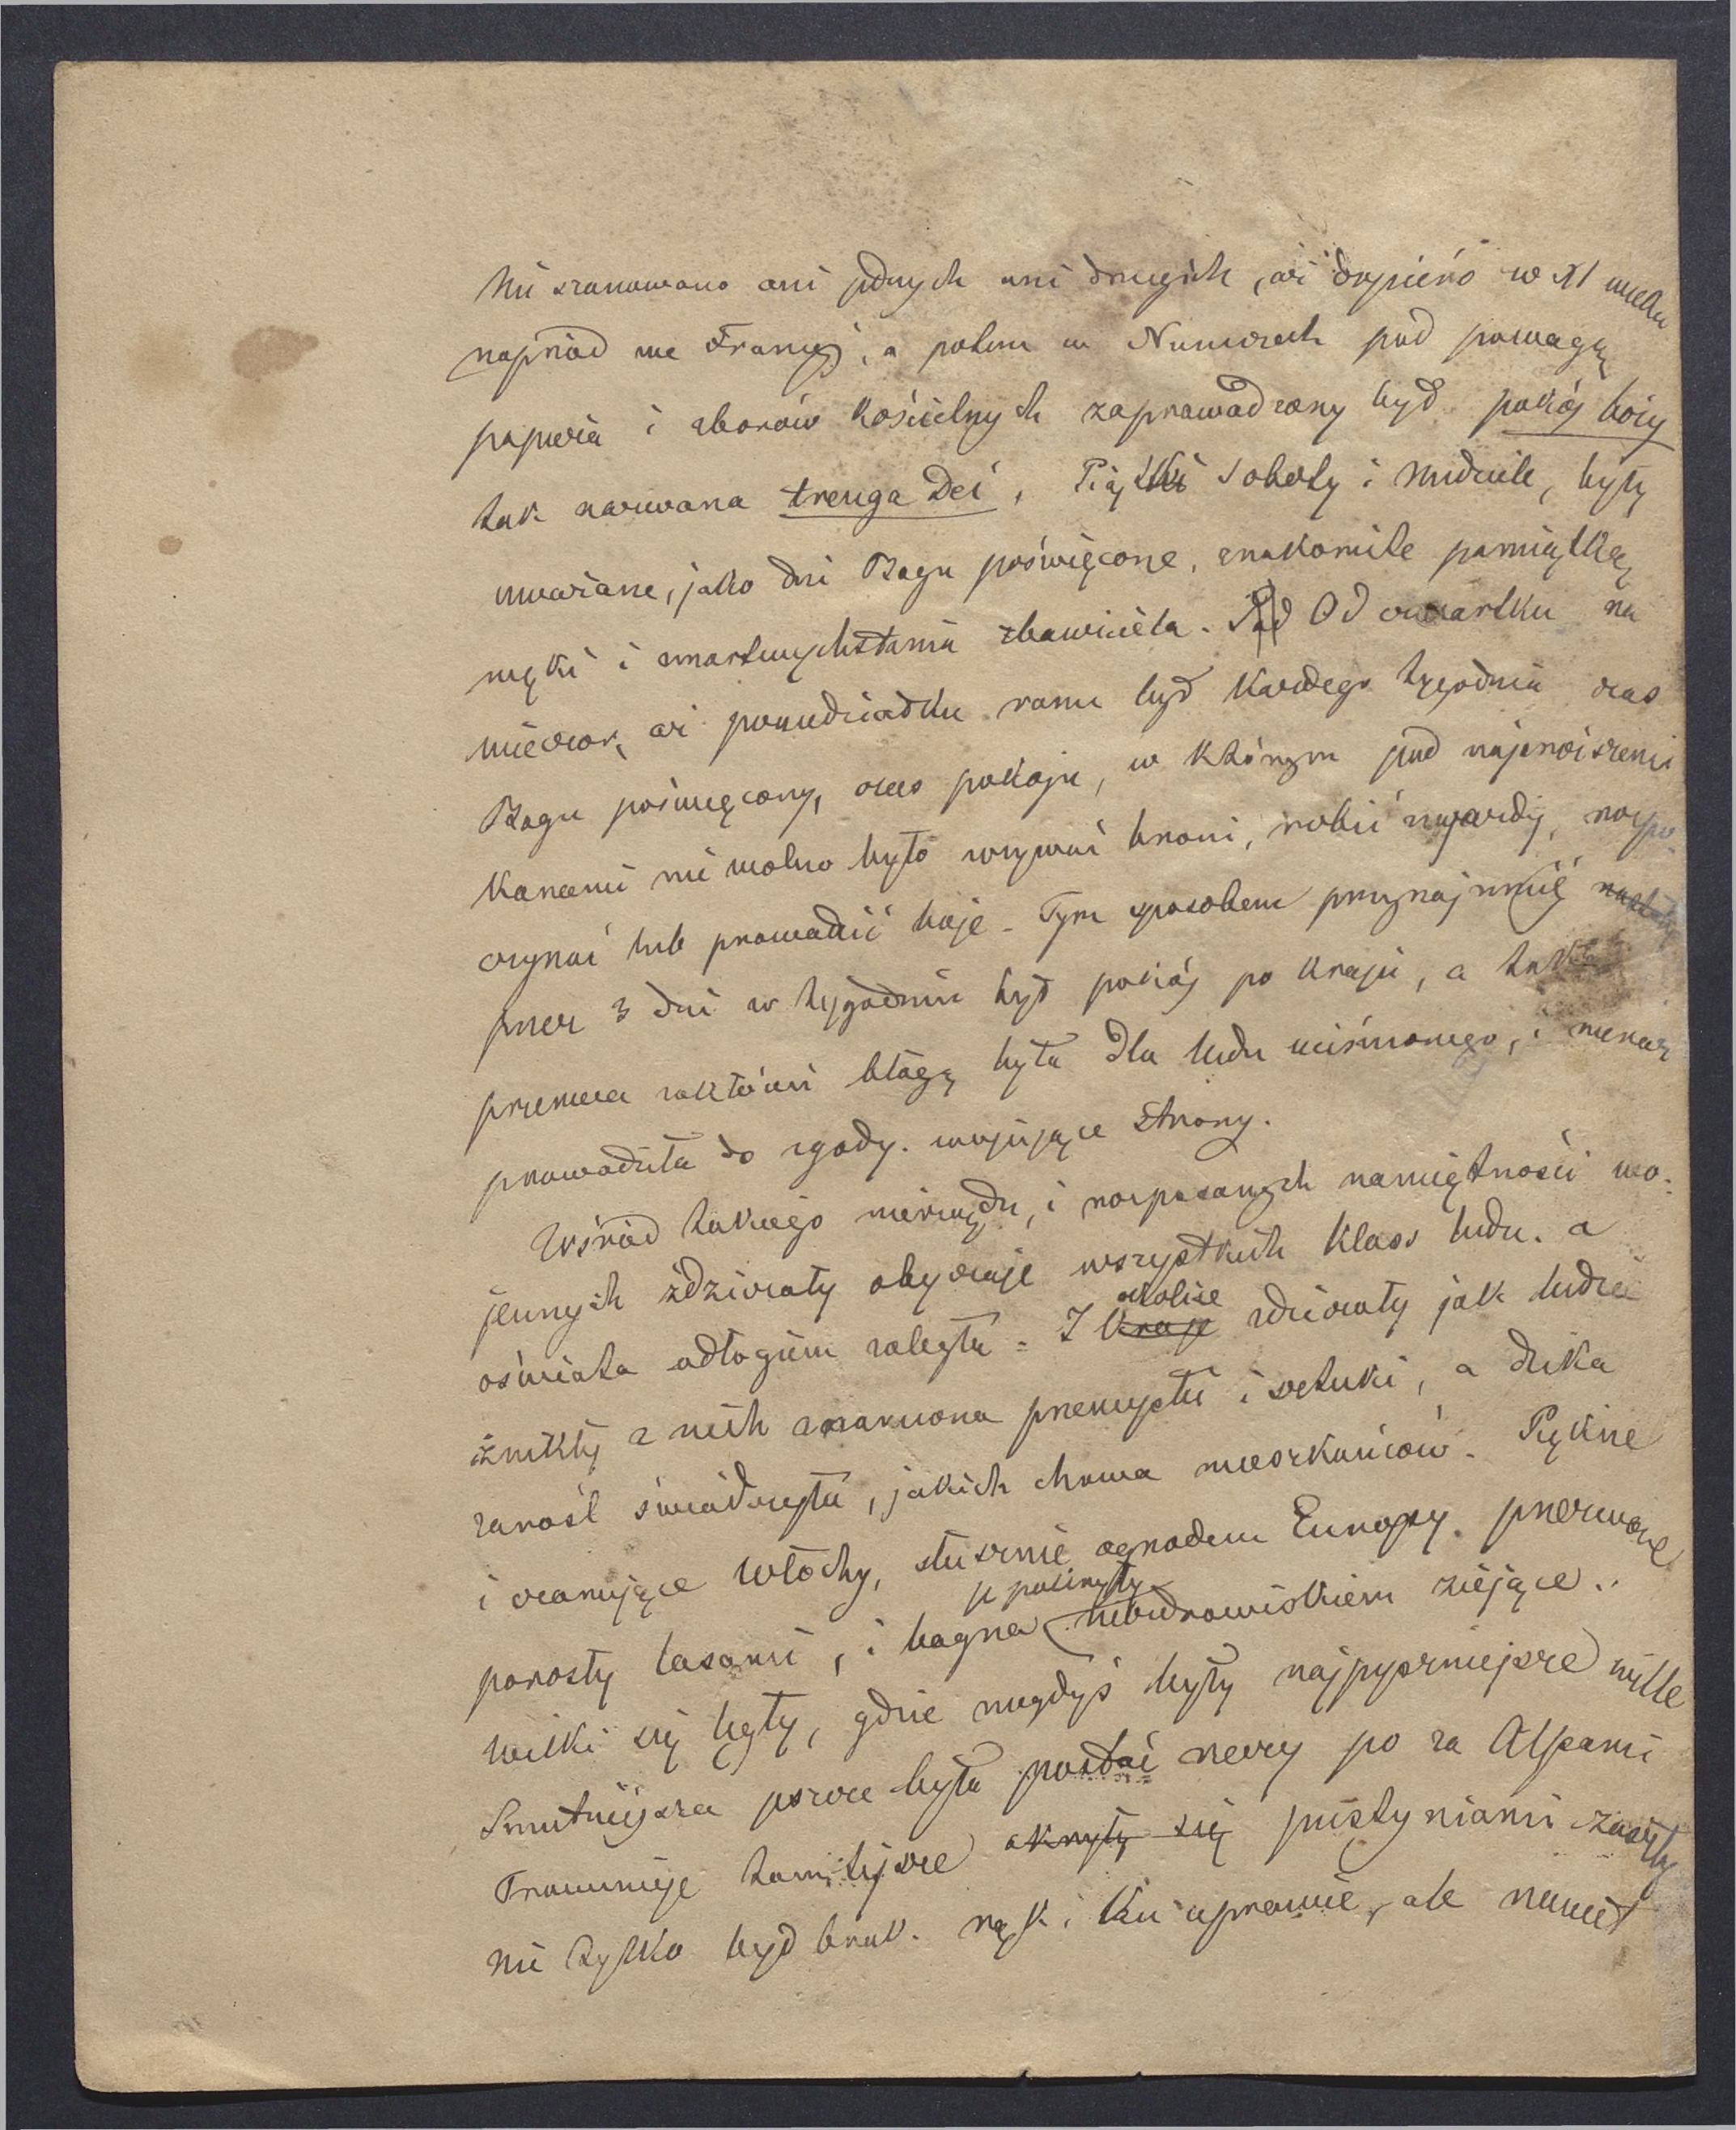 Nie szanowano ani jednych ani drugich, aż dopiéro w XI wieku
naprzód we Francyj, a potem w Niemczech pod powagą
papieża i zborów kościelnych zaprowadzony był pokój boży
tak nazwana treuga Dei, Piątki soboty i niedziele, były
uważane, jako dni Bogu poświęcone, znakomite pamiątką
męki i zmartwychstania zbawiciela. Pod Od czwartku na
wieczor, aż poniedziałku rana był każdego tygodnia czas
Bogu poświęcony, czas pokoju, w którym pod najsroższemi
karami nie wolno było używać broni, robić najazdy, rozpo-
czynać lub prowadzić boje - Tym sposobem przynajmniéj
przez 3 dni w tygodniu był pokój po kraju, a taka
przerwa zakłóceń błogą była dla ludu uciśnionego, i nieraz
prowadziła do zgody. wojujące strony.
Wśród takiego nierządu, i rozpasanych namiętności wo-
jennych zdziczały obyczaje wszystkich klass ludu. a
oświata odłogiem zaległa = I kraje okolice zdziczały jak ludzie
znikły z nich znamiona przemysłu i sztuki, a dzika
zarośl świadczyła, jakich chowa mieszkańców. Piękne
i czarujące Włochy, słusznie ogrodem Europy. przezwane
porosły lasami, i bagna je pokryły niezdrowiskiem ziejące..
wilki się lęgły, gdzie niegdyś były najpyszniejsze wille
Smutniejsza jeszcze była postać rzeczy po za Alpami
Prowincye tamtejsze okryły się pustyniami zaszły
nie tylko był brak. rąk i ku uprawie, ale nawet